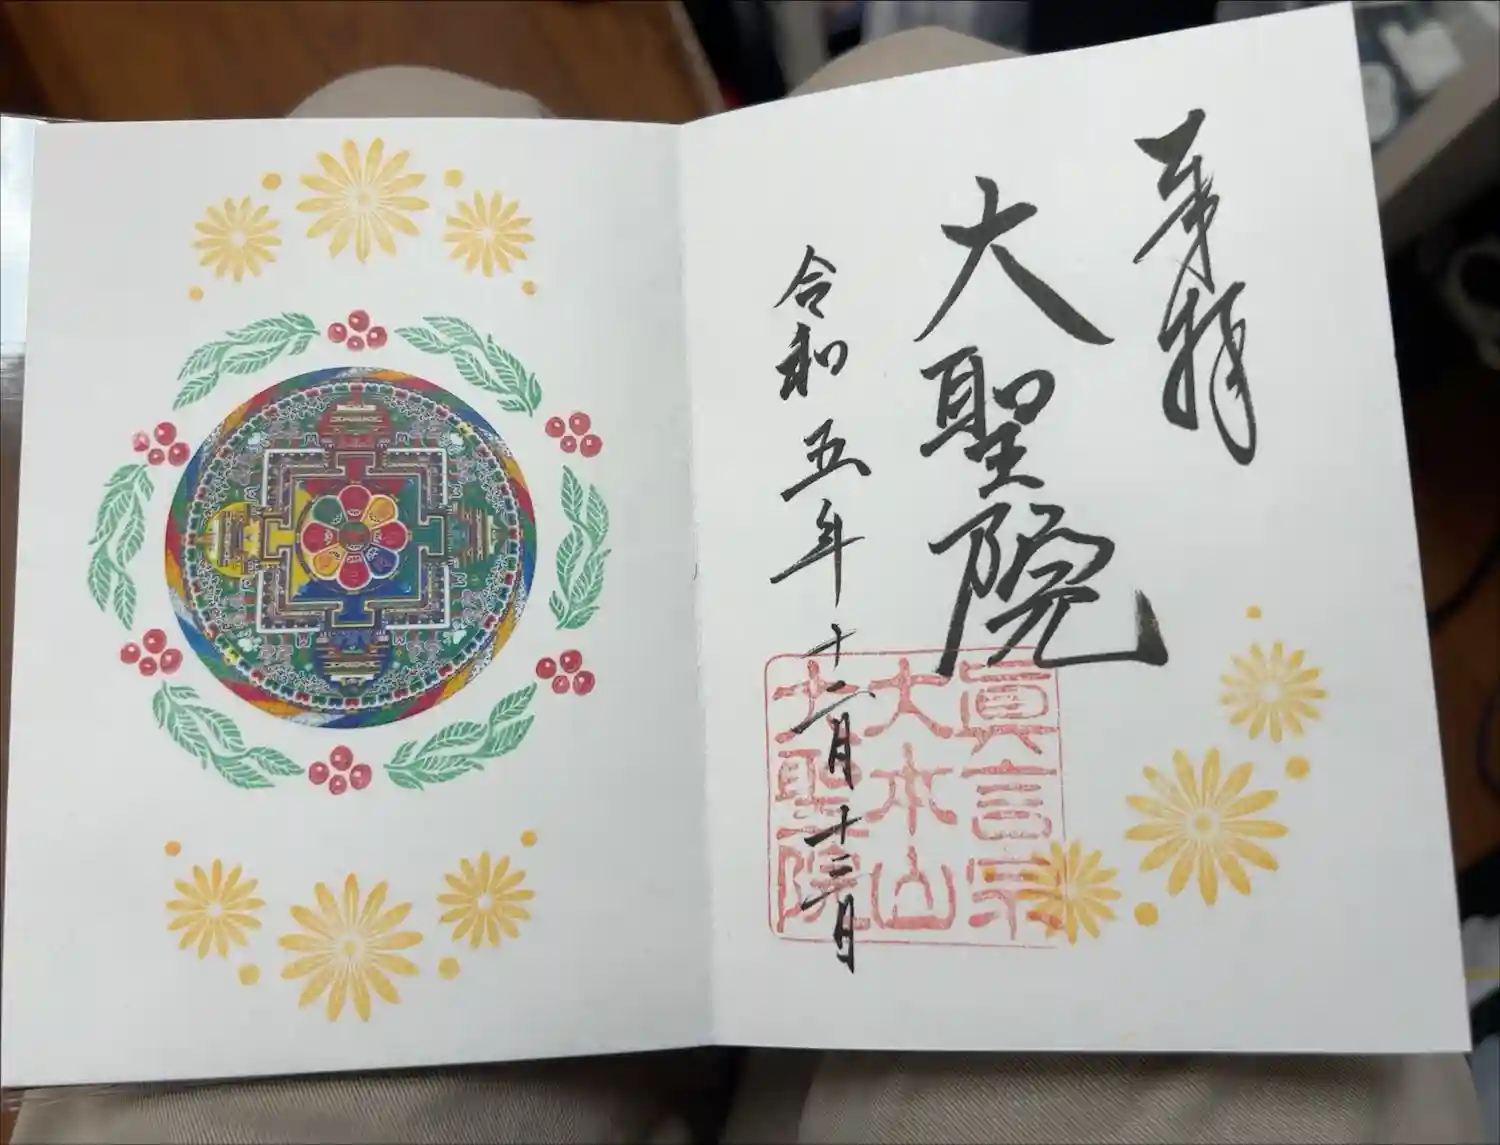 奉拝
大聖院
令和五年十二月十三日
眞言宗
大本山
大聖院